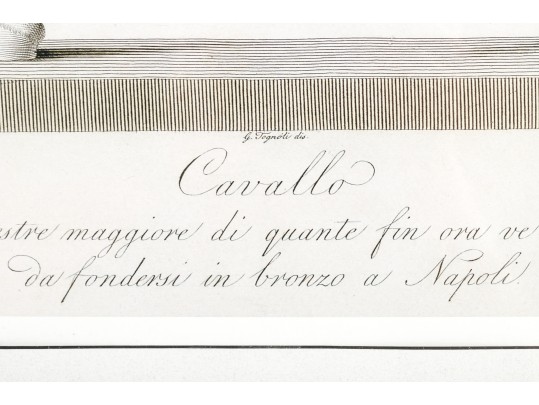 G. Tognoli dis.
Cavallo
estre maggiore di quante fin ora ve
da fondersi in bronzo a Napoli.